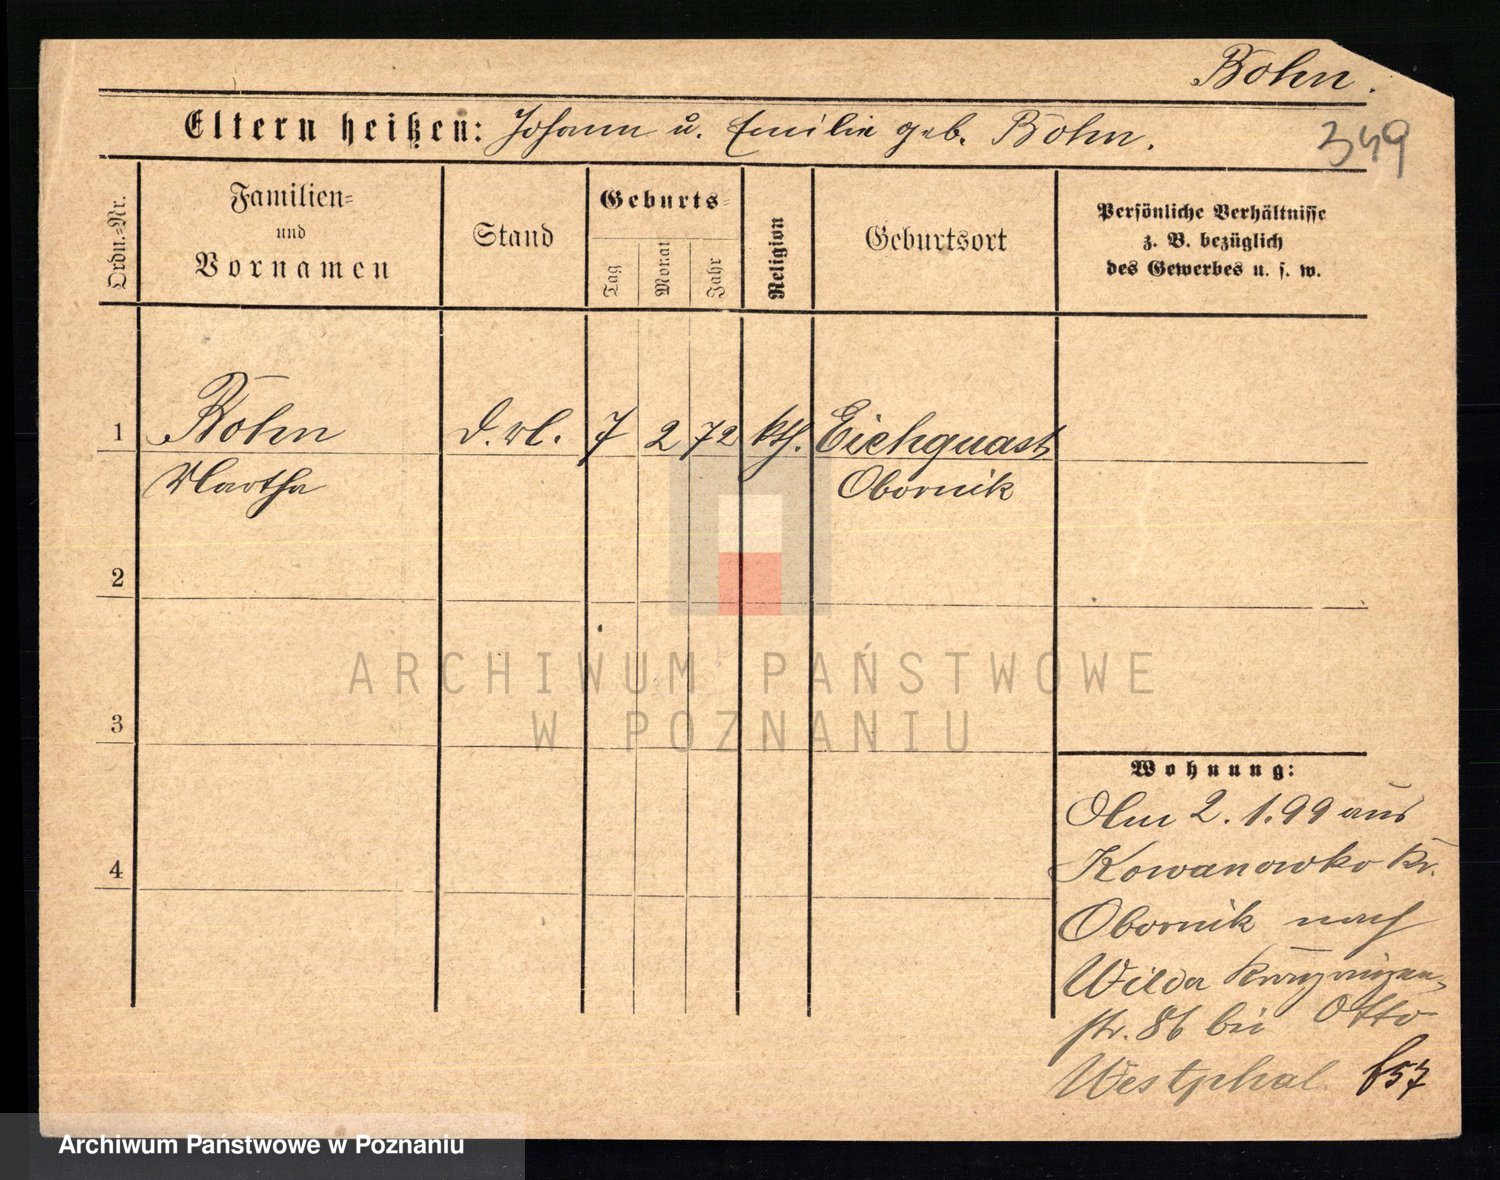 Bohn.
Eltern heißen: Johann u. Emilie geb. Bohn.
349
Ordn.=Nr.
Familien=
und
Vornamen
Stand
Geburts=
Tag
Monat
Jahr
Religion
Geburtsort
Persönliche Verhältnisse
z. B. bezüglich
des Gewerbes u. s. w.
1 Bohn 7 2 72 kth. Eichquast
Martha Obornik
2
3
4
ARCHIWUM PAŃSTWOWE
W POZNANIU
Wohnung:
Am 2.1.99 aus
Kowanowko Kr.
Obornik nach
Wilda
str. 86 bei Otto
Westphal
Archiwum Państwowe w Poznaniu